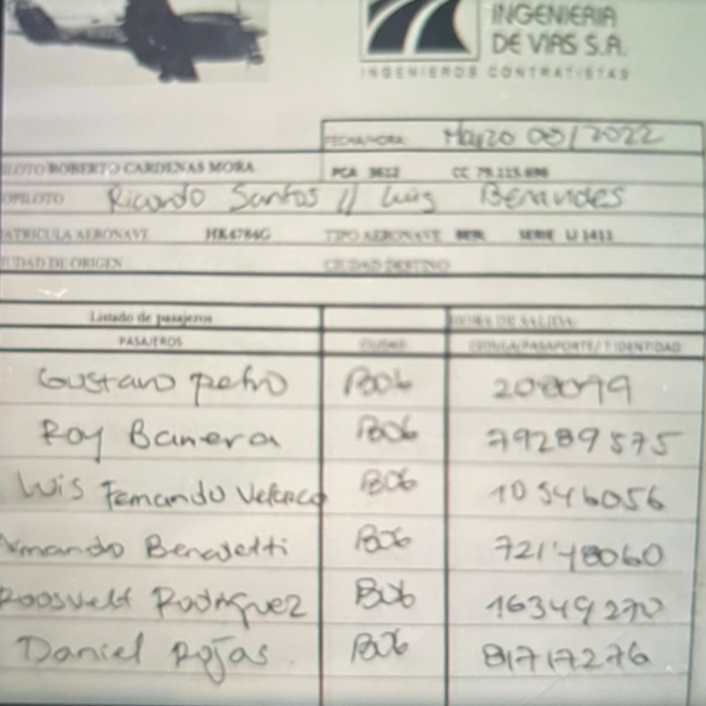 INGENIERIA
DE VIAS S.A.
INGENIEROS CONTRATISTAS
FECHA/HORA: Marzo /2022
ILOTO ROBERTO CARDENAS MORA PCA 3612 CC
OPILOTO Ricardo Santos // Luis Benavides
ATRICULA AERONAVE HK4784G TIPO AERONAVE SERIE LJ 1411
IUDAD DE ORIGEN CIUDAD DESTINO
Listado de pasajeros HORA DE SALIDA:
PASAJEROS CIUDAD CEDULA/PASAPORTE/T IDENTIDAD
Gustavo Petro BOG 208079
Roy Barrera BOG 79289575
Luis Fernando Velasco BOG 10546056
rmando Benedetti BOG 72148060
Roosvelt Rodriguez BOG 16349270
Daniel Rojas BOG 81717276